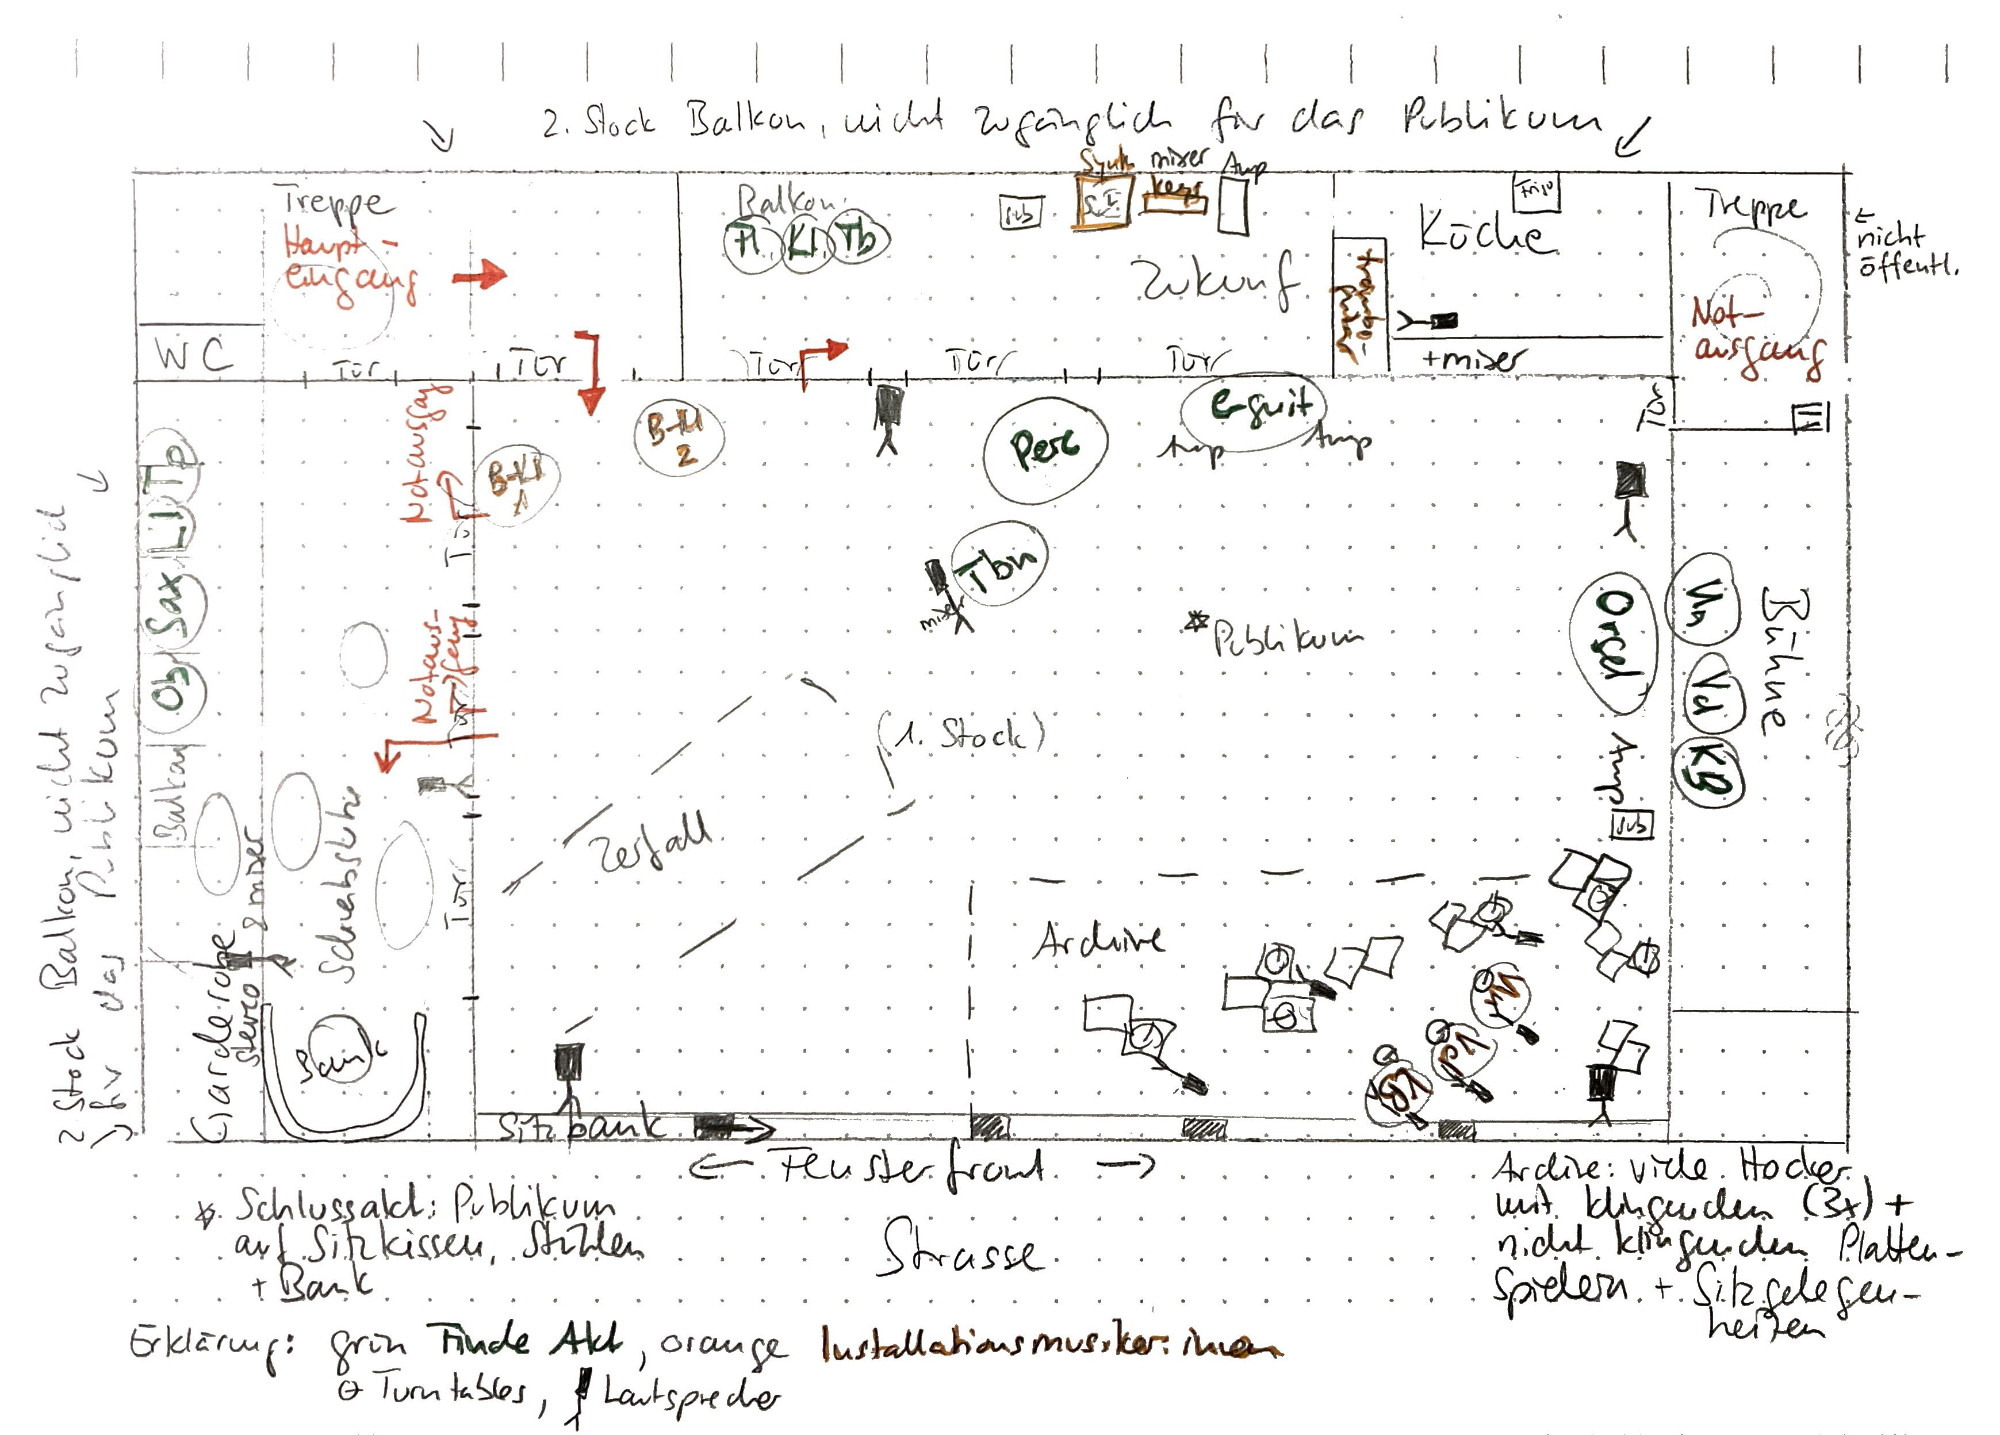 2. Stock Balkon, nicht zugänglich für das Publikum
Treppe
Haupt-
eingang
WC
Tür
Tür
Balkon
Fl Kl Tb
Sub
Synth
mixer
keys
Amp
Zukunft
Tür
Tür
Tür
Küche
+mixer
Treppe
Not-
ausgang
nicht
öffentl.
Tür
Notausgang
Tür
B-Kl
1
B-Kl
2
Perc
e-guit
Amp
Amp
Tbn
mixer
*Publikum
Orgel
Amp
Sub
Vn
Vcl
KB
Bühne
Ob Sax Tp
Balkon
2 Stock Balkon, nicht zugänglich
für das Publikum
Notaus-
gang
Tür
Tür
(1. Stock)
Zerfall
Archive
Garderobe
stereo & mixer
Bank
Vn
Vcl
KB
Sitzbank
← Fensterfront →
* Schlussakt: Publikum
auf Sitzkissen, Stühlen
+ Bank
Strasse
Archive: viele Hocker
mit klingenden (3x) +
nicht klingenden Platten-
spielern + Sitzgelegen-
heiten
Erklärung: grün Finde Akt, orange Installationsmusiker:innen
Turntables, Lautsprecher